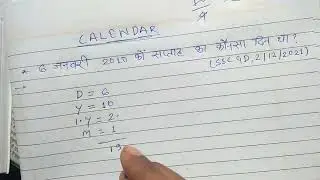 CALENDAR
* 6 जनवरी 2010 को सप्ताह का कौनसा दिन था?
(SSC GD, 2/12/2021)
D = 6
Y = 10
L.Y = 2
M = 1
19